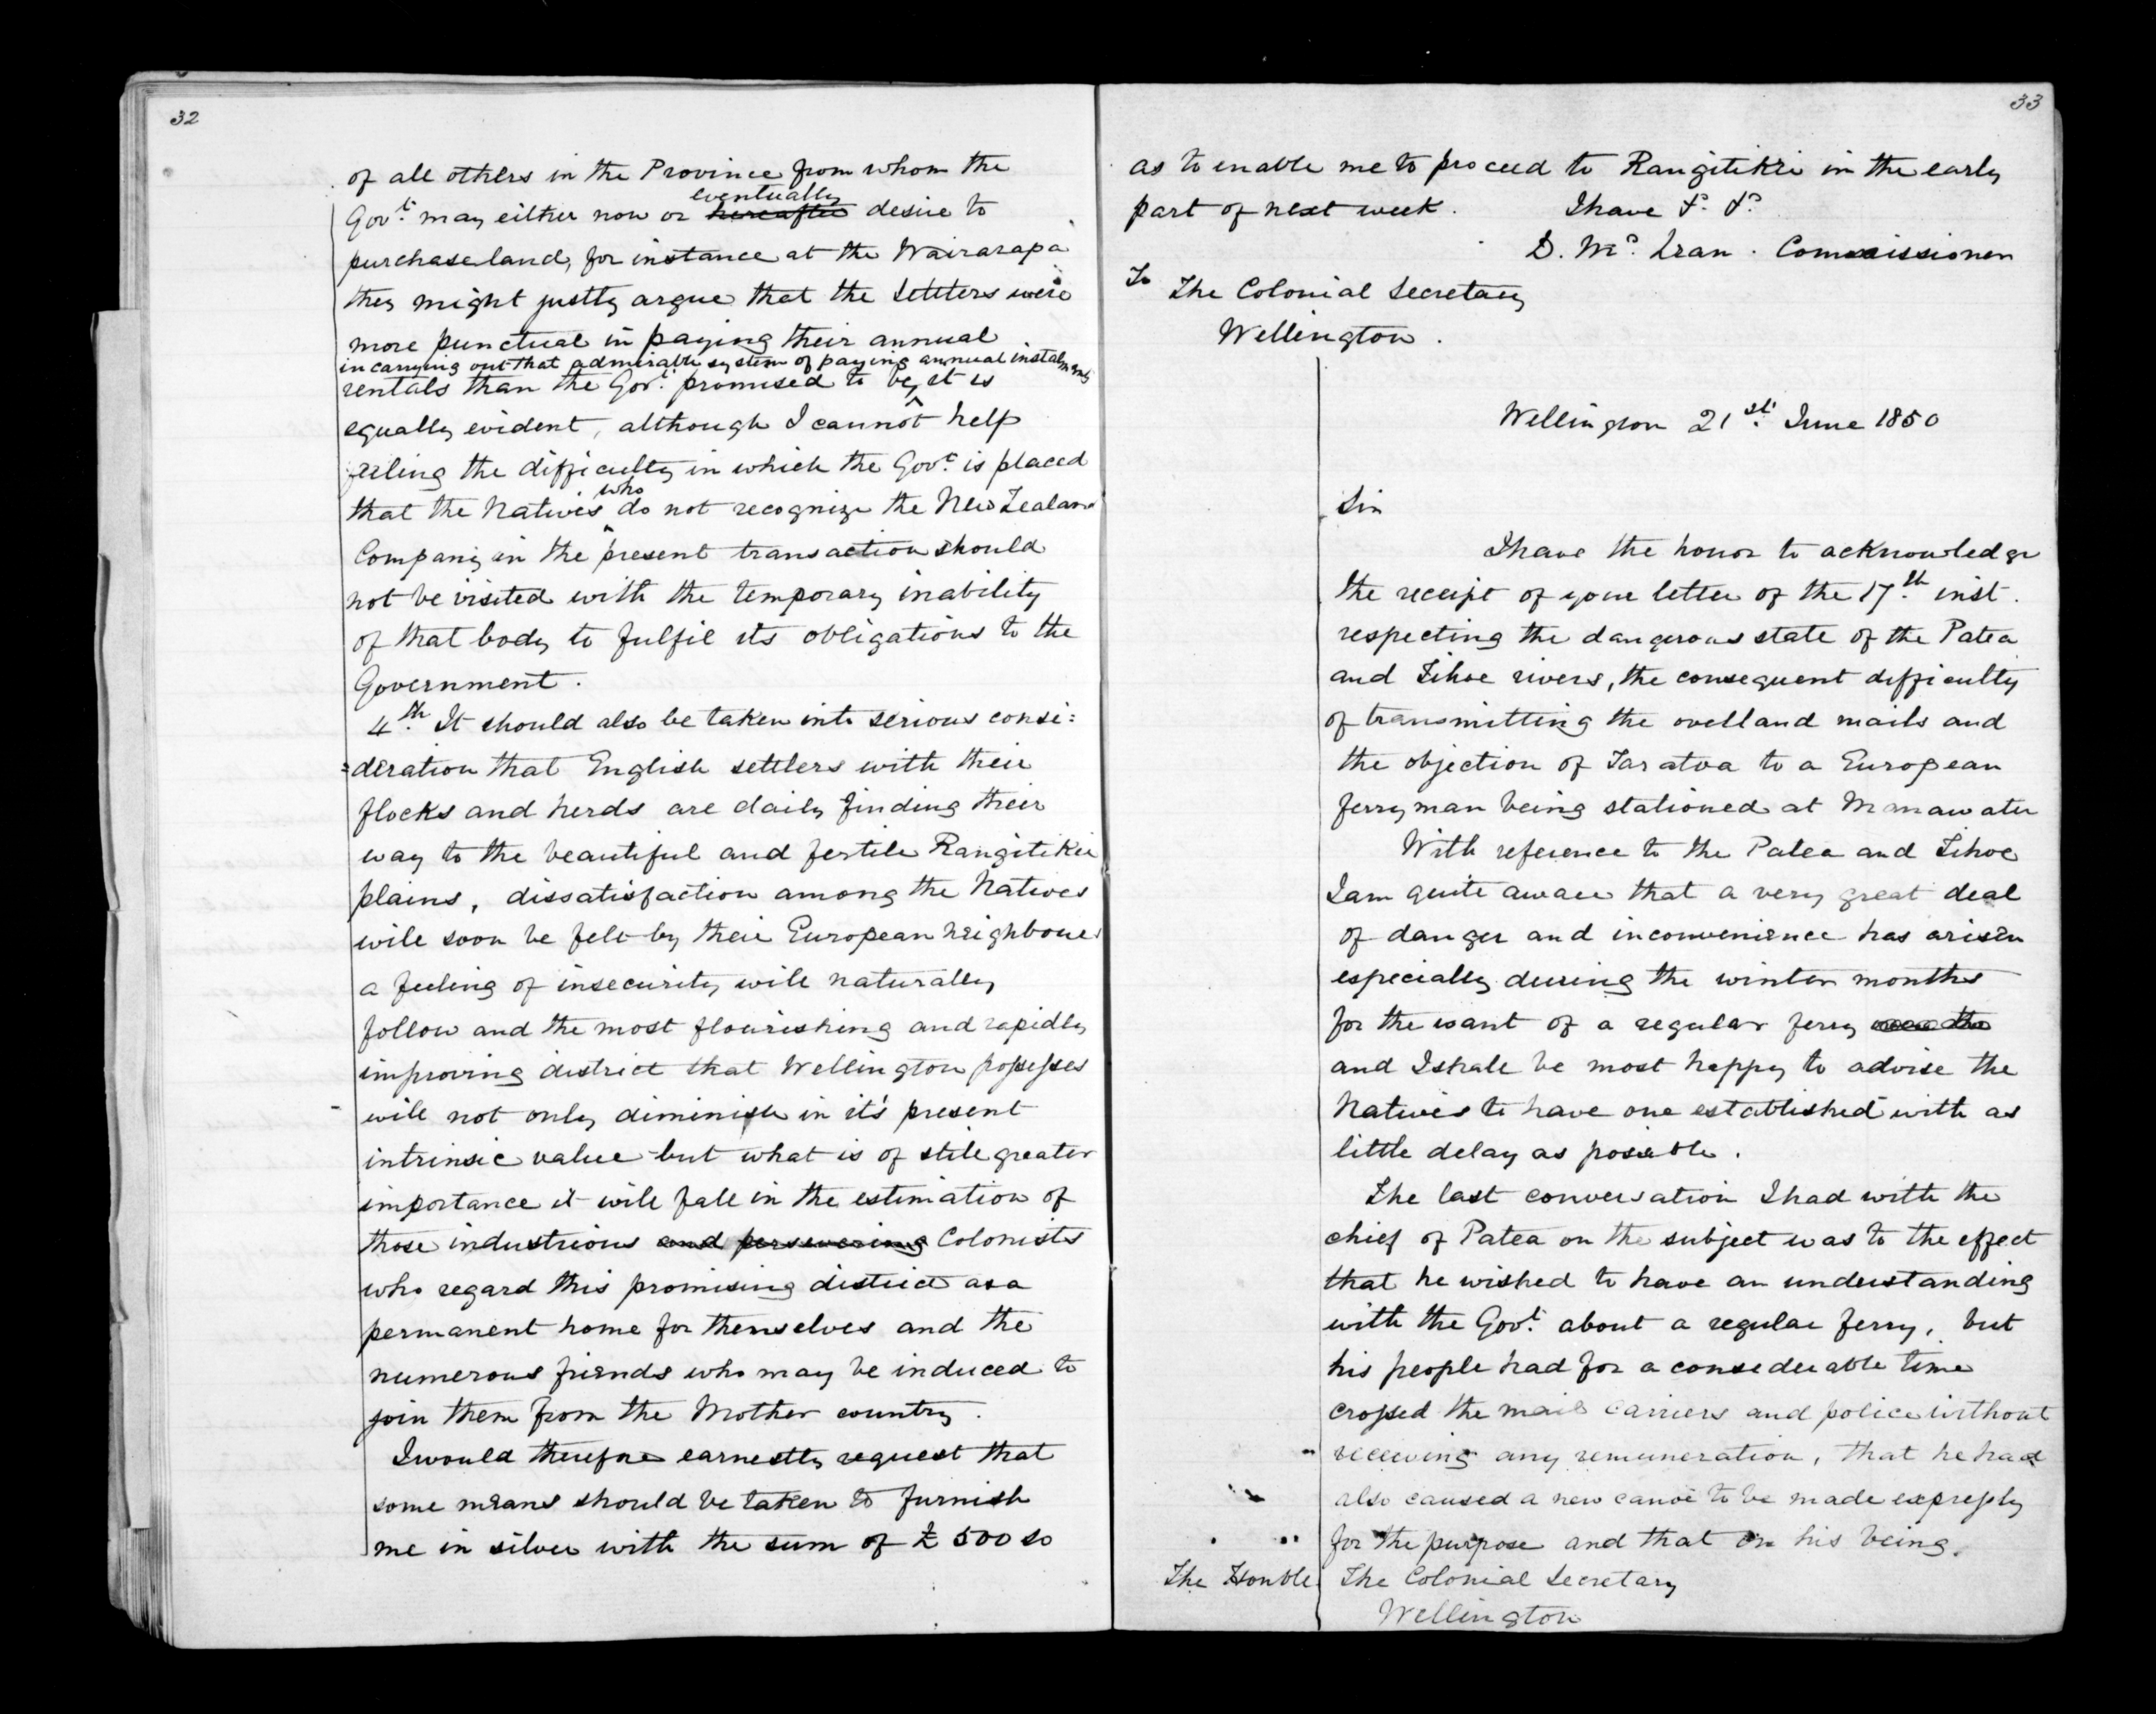 32
of all others in the Province from whom the
eventually
Govt. may either now or hereafter desire to
purchase land, for instance at the Wairarapa
they might justly argue that the Settlers were
more punctual in paying their annual
in carrying out that admirable system of paying annual instalments
rentals than the Govt. promised to be, it is
equally evident, although I cannot help
feeling the difficulty in which the Govt. is placed
who
that the Natives do not recognize the New Zealand
Company in the present transaction should
not be visited with the temporary inability
of that body to fulfil its obligations to the
Government.
4th. It should also be taken into serious consi=
=deration that English settlers with their
flocks and herds are daily finding their
way to the beautiful and fertile Rangitikei
plains, dissatisfaction among the Natives
will soon be felt by their European neighbours
a feeling of insecurity will naturally
follow and the most flourishing and rapidly
improving district that Wellington possesses
will not only diminish in it's present
intrinsic value but what is of still greater
importance it will fall in the estimation of
those industrious and persevering Colonists
who regard this promising district as a
permanent home for themselves and the
numerous friends who may be induced to
join them from the Mother country.
I would therefore earnestly request that
some means should be taken to furnish
me in silver with the sum of £500 so
33
as to enable me to proceed to Rangitikei in the early
part of next week. I have &c. &c.
D. Mc. Lean. Commissioner
To
The Colonial Secretary
Wellington.
Wellington 21st. June 1850
Sir
I have the honor to acknowledge
the receipt of your letter of the 17th. inst.
respecting the dangerous state of the Patea
and Tihoe rivers, the consequent difficulty
of transmitting the overland mails and
the objection of Taratoa to a European
ferryman being stationed at Manawatu
With reference to the Patea and Tihoe
I am quite aware that a very great deal
of danger and inconvenience has arisen
especially during the winter months
for the want of a regular ferry
and I shall be most happy to advise the
Natives to have one established with as
little delay as possible.
The last conversation I had with the
chief of Patea on the subject was to the effect
that he wished to have an understanding
with the Govt. about a regular ferry, but
his people had for a considerable time
crossed the mail carriers and police without
receiving any remuneration, that he had
also caused a new canoe to be made expressly
for the purpose and that on his being
The Honble The Colonial Secretary
Wellington